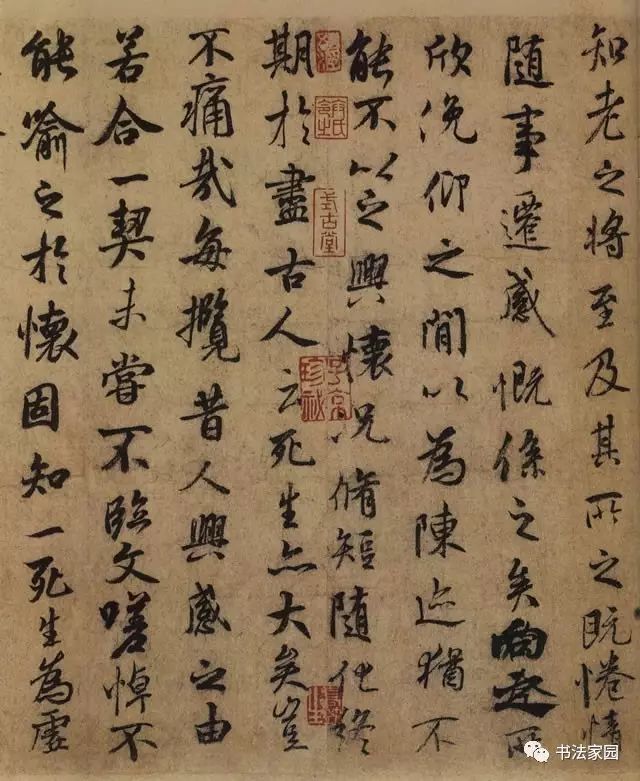 知老之将至及其所之既惓情
随事遷感慨係之矣向之所
欣俛仰之閒以為陳迹猶不
能不以之興懷况脩短随化終
期於盡古人云死生亦大矣豈
不痛哉每攬昔人興感之由
若合一契未嘗不臨文嗟悼不
能喻之於懷固知一死生為虛
式古堂
书法家园